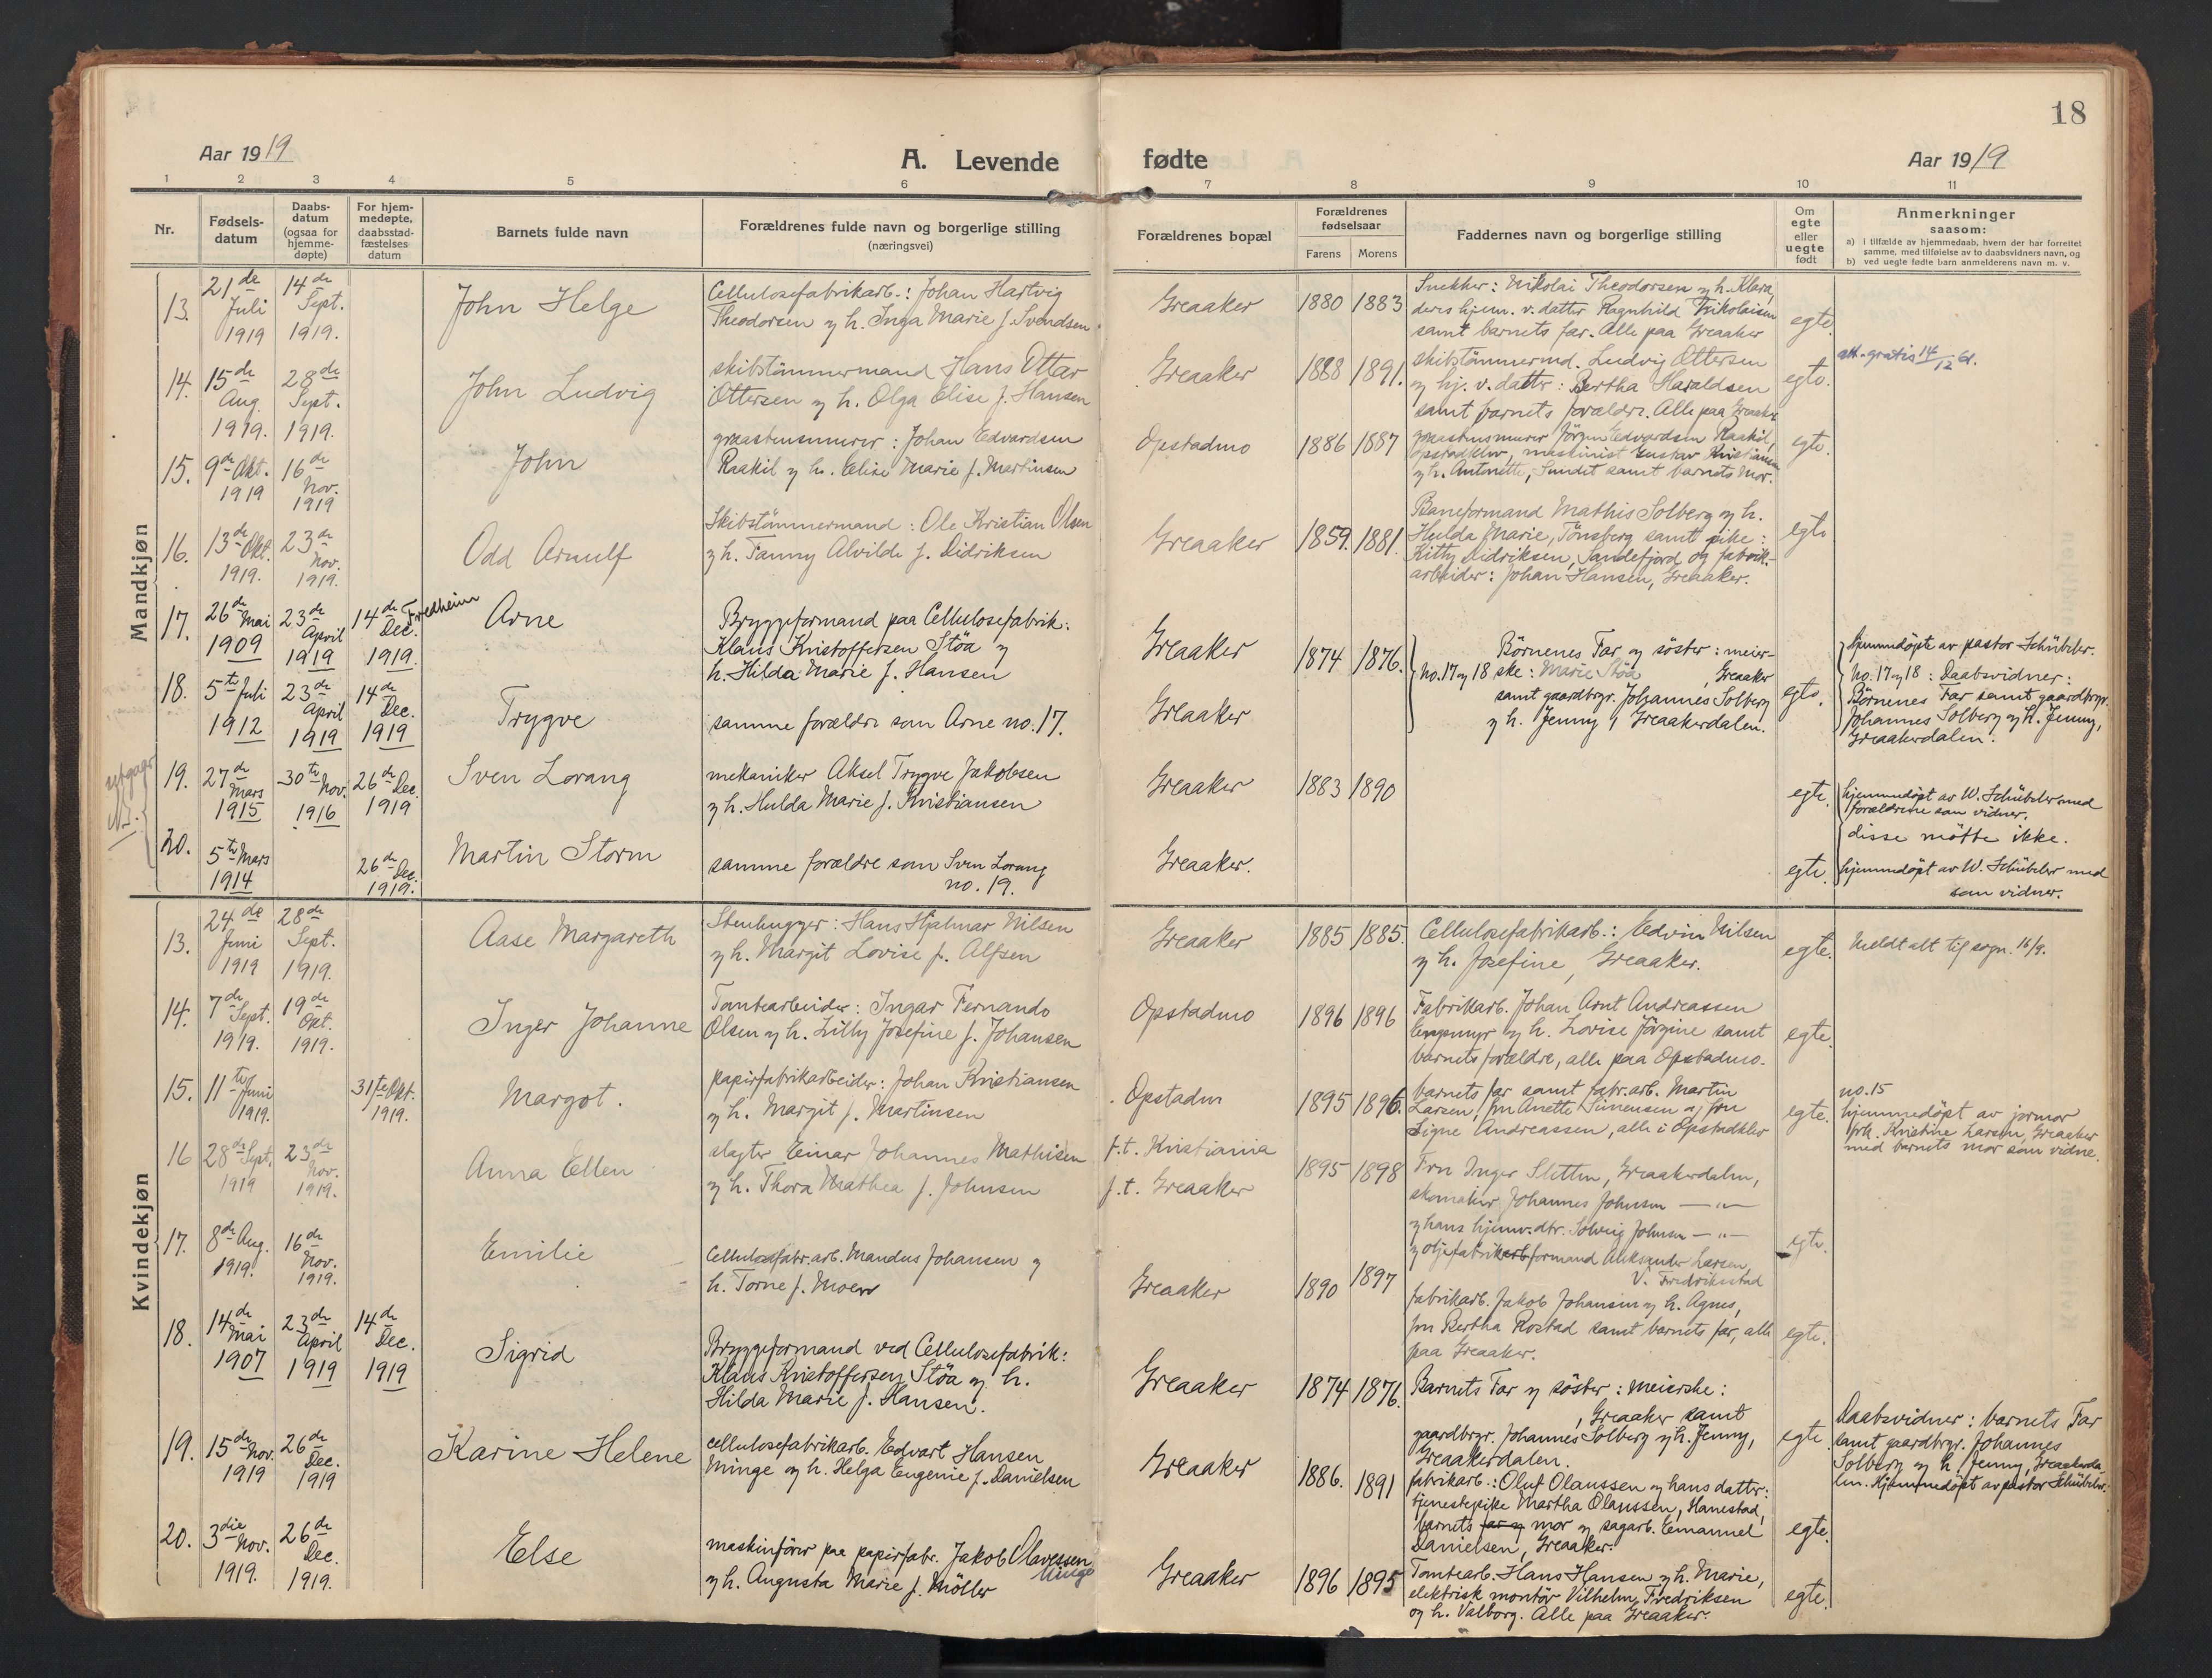 18
Aar 1919
A. Levende fødte
Aar 1919
1 2 3 4 5 6 7 8 9 10 11
Nr.
Fødsels-
datum
Daabs-
datum
(ogsaa for
hjemme-
døpte)
For hjem-
medøpte,
daabsstad-
fæstelses
datum
Barnets fulde navn
Forældrenes fulde navn og borgerlige stilling
(næringsvei)
Forældrenes bopæl
Forældrenes
fødselsaar
Farens Morens
Faddernes navn og borgerlige stilling
Om
egte
eller
uegte
født
Anmerkninger
saasom:
a) i tilfælde av hjemmedaab, hvem der har forrettet
samme, med tilføielse av to daabsvidners navn, og
b) ved uegte fødte barn anmelderens navn m. v.
Mandkjøn
13.
21de
Juli
1919
14de
Sept.
1919.
John Helge
Cellulosefabrikarb.: Johan Hartvig
Theodorsen og h. Inga Marie f. Svendsen
Greaaker
1880 1883
Snekker: Nikolai Theodorsen og h. Klara,
deres hjem. v. datter Ragnhild Nikolaisen
samt barnets far. Alle paa Greaaker
egte.
14.
15de
Aug.
1919.
28de
Sept.
1919.
John Ludvig
skibstömmermand Hans Ottar
Ottersen og h. Olga Elise f. Hansen
Greaaker
1888 1891.
skibstömmermd. Ludvig Ottersen
og hj. v. datter: Bertha Haraldsen
samt barnets forældre. Alle paa Greaaker
egte.
att. gratis 14/12 61.
15.
9de Okt.
1919
16de
Nov.
1919
John
graastensmurer: Johan Edvardsen
Raakil og h. Elise Marie f. Martinsen
Opstadmo
1886 1887
graastensmurer Jörgen Edvardsen Raakil,
Opstadklev, maskinist Gustav Kristiansen
og h. Antonette, Sundet samt barnets Mor.
egte.
16.
13de Okt.
1919.
23de
Nov.
1919.
Odd Arnulf
Skibstömmermand: Ole Kristian Olsen
og h. Fanny Alvilde f. Didriksen
Greaaker
1859. 1881.
Baneformand Mathis Solberg og h.
Hulda Marie, Tönsberg samt pike:
Kitty Didriksen, Sandefjord og fabrik-
arbeider: Johan Hansen, Greaaker.
egte
17.
26de Mai
1909
23de
April
1919
14de
Dec.
1919.
Fredheim
Arne
Bryggeformand paa Cellulosefabrik:
Klaus Kristoffersen Stöa og
h. Hilda Marie f. Hansen
Greaaker
1874 1876.
No. 17 og 18
Börnenes Far og söster: meier-
ske: Marie Stöa, Greaaker
samt gaardbrgr. Johannes Solberg
og h. Jenny, Greaakerdalen.
egte.
hjemmedöpte av pastor Schübeler.
No. 17 og 18: Daabsvidner:
Börnenes Far samt gaardbrgr.
Johannes Solberg og h. Jenny,
Greaakerdalen.
18.
5te Juli
1912
23de
April
1919
14de
Dec.
1919
Trygve
samme forældre som Arne no. 17.
Greaaker
19.
27de
Mars
1915
30te Nov.
1916
26de Dec.
1919
Sven Lorang
mekaniker Aksel Trygve Jakobsen
og h. Hulda Marie f. Kristiansen
Greaaker
1883 1890
egte.
hjemmedöpt av W. Schübeler med
forældrene som vidner.
disse mötte ikke.
20.
5te Mars
1914
26de
Dec.
1919.
Martin Storm
samme forældre som Sven Lorang
no. 19.
Greaaker.
egte.
hjemmedöpt av W. Schübeler med
som vidner.
Kvindekjøn
13.
24de
Juni
1919
28de
Sept.
1919.
Aase Margareth
Stenhugger: Hans Hjalmar Nilsen
og h. Margit Lovise f. Alfsen
Greaaker
1885 1885.
Cellulosefabrikarb.: Edvin Nilsen
og h. Josefine, Greaaker.
egte.
Meldt alt til sogn. 16/9.
14.
7de
Sept.
1919.
19de
Okt.
1919.
Inger Johanne
Tomtearbeider: Ingar Fernando
Olsen og h. Lilly Josefine f. Johansen
Opstadmo
1896 1896
Fabrikkarb. Johan Arnt Andreassen
Engsmyr og h. Lovise Jörgine samt
barnets forældre, alle paa Opstadmo.
egte.
15.
11te Juni
1919.
31te Okt.
1919.
Margot.
papirfabrikarbeider: Johan Kristiansen
og h. Margit f. Martinsen
Opstadm
1895 1896.
barnets far samt fabr.arb. Martin
Larsen, fru Anette Simensen og fru
Signe Andreassen, alle i Opstadklev
egte.
no. 15
hjemmedöpt av jormor
frk. Kristine Larsen, Greaaker
med barnets mor som vidne.
16
28de Sept.
1919
23de
Nov.
1919.
Anna Ellen
slagter Einar Johannes Mathisen
og h. Thora Mathea f. Johnsen
f.t. Kristiania
f.t. Greaaker
1895 1898
Fru Inger Sletten, Greaakerdalen,
skomaker Johannes Johnsen — " —
og hans hjemv. dtr. Solveig Johnsen — " —
og oljefabrikarbformand Aleksander Larsen,
V. Fredrikstad
egte.
17.
8de Aug.
1919.
16de
Nov.
1919.
Emilie
Cellulosefabr.arb. Mandus Johansen og
h. Torne f. Moen
Greaaker
1890 1897
fabrikarb. Jakob Johansen og h. Agnes,
fru Bertha Rostad samt barnets far, alle
paa Greaaker.
egte.
18.
14de
Mai
1907
23de
April
1919
14de
Dec.
1919
Sigrid
Bryggeformand ved Cellulosefabrik:
Klaus Kristoffersen Stöa og h.
Hilda Marie f. Hansen.
Greaaker
1874 1876.
Barnets Far og söster: Meierske:
, Greaaker samt
gaardbrgr. Johannes Solberg og h. Jenny,
Greaakerdalen.
egte.
Daabsvidner: barnets Far
samt gaardbrgr. Johannes
Solberg og h. Jenny, Greaakerda-
len. Hjemmedöpt av pastor Schübeler.
19.
15de Nov.
1919
26de
Dec.
1919
Karine Helene
cellulosefabrikarb. Edvart Hansen
Minge og h. Helga Eugenie f. Danielsen
Greaaker
1886. 1891
fabrikarb.: Oluf Olaussen og hans datter:
tjenestepike Martha Olaussen, Hanestad,
barnets far og mor og sagarb. Emanuel
Danielsen, Greaaker.
egte.
20.
3die
Nov.
1919.
26de
Dec.
1919.
Else
maskinförer paa papirfabr. Jakob Olavessen
Minge
og h. Augusta Marie f. Möller
Greaaker
1896 1895
Tomtearb. Hans Hansen og h. Marie,
elektrisk montör Vilhelm Fredriksen
og h. Valborg. Alle paa Greaaker.
egte.